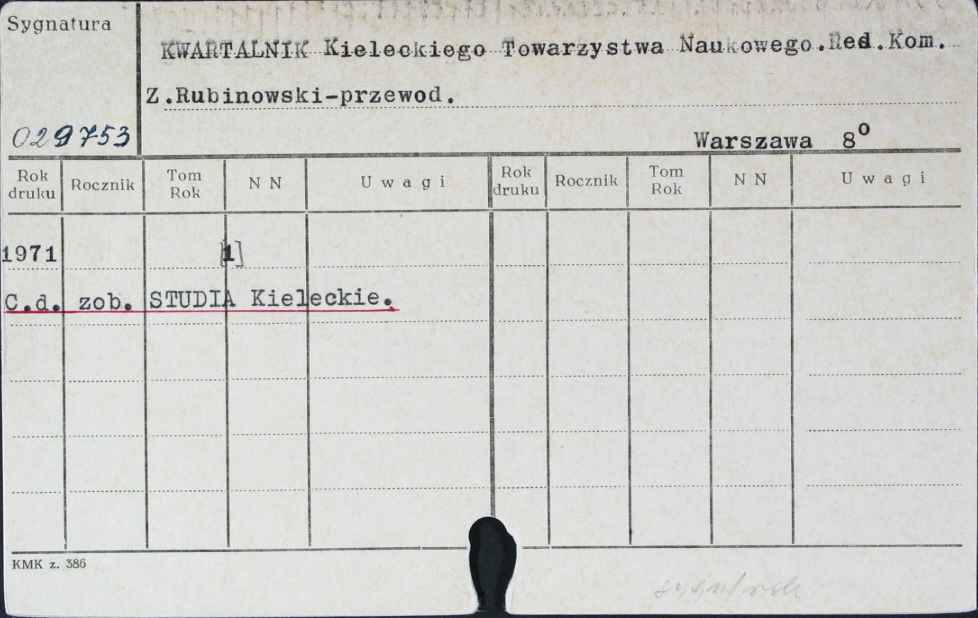 Sygnatura
KWARTALNIK Kieleckiego Towarzystwa Naukowego.Red.Kom.
Z.Rubinowski-przewod.
029753
Warszawa 8º
Rok druku Rocznik Tom Rok N N Uwagi Rok druku Rocznik Tom Rok N N Uwagi
1971 [1]
C.d. zob. STUDIA Kieleckie.
KMK z. 386